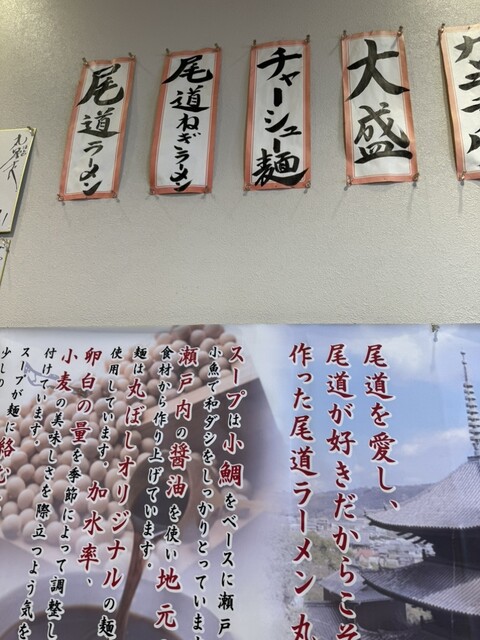 尾道ラーメン
尾道ねぎラーメン
チャーシュー麺
大盛
尾道を愛し、
尾道が好きだからこそ
作った尾道ラーメン 丸
スープは小鯛をベースに瀬戸
小魚で和ダシをしっかりとっていま
瀬戸内の醤油を使い地元の
食材から作り上げています。
麺は丸ぼしオリジナルの麺
使用しています。加水率、
卵白の量を季節によって調整し
小麦の美味しさを際立つよう気を
付けています。
スープが麺に絡む
少し